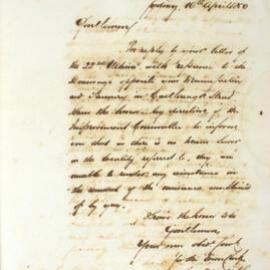 Sydney, 16th April 80
Gentlemen
In reply to your letter of
the 22nd Ultimo with reference to the
drainage opposite your
at Tannery in Castlereagh Street
I have the honor by direction of the
Improvement Committee to inform
you that as there is no main Sewer
in the locality referred to, they are
unable to render any assistance in
the removal of the nuisance complained
of by you.
I have the honor to be
Gentlemen
Your
for the Town Clerk